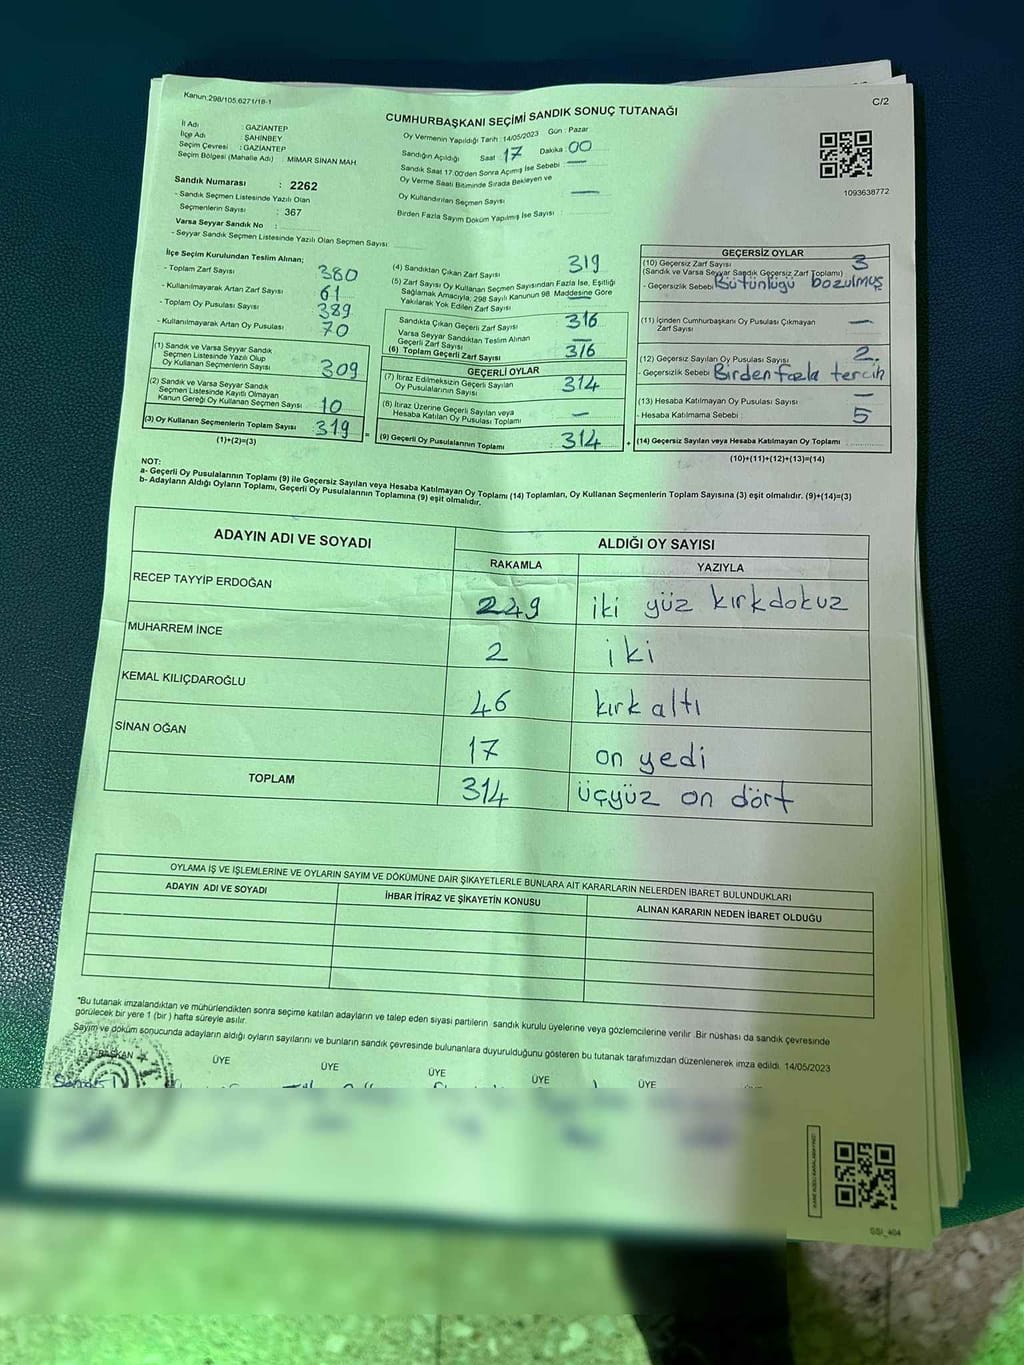 Kanun:298/105,6271/18-1
C/2
CUMHURBAŞKANI SEÇİMİ SANDIK SONUÇ TUTANAĞI
İl Adı : GAZIANTEP
İlçe Adı : ŞAHİNBEY
Seçim Çevresi : GAZIANTEP
Seçim Bölgesi (Mahalle Adı) : MIMAR SINAN MAH.
Sandık Numarası : 2262
- Sandık Seçmen Listesinde Yazılı Olan
Seçmenlerin Sayısı : 367
Varsa Seyyar Sandık No :
- Seyyar Sandık Seçmen Listesinde Yazılı Olan Seçmen Sayısı:
Oy Vermenin Yapıldığı Tarih : 14/05/2023 Gün : Pazar
Sandığın Açıldığı Saat : 17 Dakika : 00
Sandık Saat 17:00'den Sonra Açımış İse Sebebi : —
Oy Verme Saati Bitiminde Sırada Bekleyen ve
Oy Kullandırılan Seçmen Sayısı —
Birden Fazla Sayım Döküm Yapılmış İse Sayısı :
1093638772
İlçe Seçim Kurulundan Teslim Alınan;
- Toplam Zarf Sayısı 380
- Kullanılmayarak Artan Zarf Sayısı 61
- Toplam Oy Pusulası Sayısı 389
- Kullanılmayarak Artan Oy Pusulası 70
(1) Sandık ve Varsa Seyyar Sandık
Seçmen Listesinde Yazılı Olup
Oy Kullanan Seçmenlerin Sayısı 309
(2) Sandık ve Varsa Seyyar Sandık
Seçmen Listesinde Kayıtlı Olmayan
Kanun Gereği Oy Kullanan Seçmen Sayısı 10
(3) Oy Kullanan Seçmenlerin Toplam Sayısı 319
(1)+(2)=(3)
(4) Sandıktan Çıkan Zarf Sayısı 319
(5) Zarf Sayısı Oy Kullanan Seçmen Sayısından Fazla İse, Eşitliği
Sağlamak Amacıyla, 298 Sayılı Kanunun 98 Maddesine Göre
Yakılarak Yok Edilen Zarf Sayısı —
Sandıkta Çıkan Geçerli Zarf Sayısı 316
Varsa Seyyar Sandıktan Teslim Alınan
Geçerli Zarf Sayısı —
(6) Toplam Geçerli Zarf Sayısı 316
GEÇERLİ OYLAR
(7) İtiraz Edilmeksizin Geçerli Sayılan
Oy Pusulalarının Sayısı 314
(8) İtiraz Üzerine Geçerli Sayılan veya
Hesaba Katılan Oy Pusulaları Toplamı —
(9) Geçerli Oy Pusulalarının Toplamı 314
GEÇERSİZ OYLAR
(10) Geçersiz Zarf Sayısı 3
(Sandık ve Varsa Seyyar Sandık Geçersiz Zarf Toplamı)
- Geçersizlik Sebebi Bütünlüğü bozulmuş
(11) İçinden Cumhurbaşkanı Oy Pusulası Çıkmayan
Zarf Sayısı —
(12) Geçersiz Sayılan Oy Pusulası Sayısı 2.
- Geçersizlik Sebebi Birden fazla tercih
(13) Hesaba Katılmayan Oy Pusulası Sayısı —
- Hesaba Katılmama Sebebi 5
(14) Geçersiz Sayılan veya Hesaba Katılmayan Oy Toplamı
(10)+(11)+(12)+(13)=(14)
NOT:
a- Geçerli Oy Pusulalarının Toplamı (9) ile Geçersiz Sayılan veya Hesaba Katılmayan Oy Toplamı (14) Toplamları, Oy Kullanan Seçmenlerin Toplam Sayısına (3) eşit olmalıdır. (9)+(14)=(3)
b- Adayların Aldığı Oyların Toplamı, Geçerli Oy Pusulalarının Toplamına (9) eşit olmalıdır.
ADAYIN ADI VE SOYADI
ALDIĞI OY SAYISI
RAKAMLA YAZIYLA
RECEP TAYYİP ERDOĞAN 249 iki yüz kırkdokuz
MUHARREM İNCE 2 iki
KEMAL KILIÇDAROĞLU 46 kırk altı
SİNAN OĞAN 17 on yedi
TOPLAM 314 üçyüz on dört
OYLAMA İŞ VE İŞLEMLERİNE VE OYLARIN SAYIM VE DÖKÜMÜNE DAİR ŞİKAYETLERLE BUNLARA AİT KARARLARIN NELERDEN İBARET BULUNDUKLARI
ADAYIN ADI VE SOYADI İHBAR İTİRAZ VE ŞİKAYETİN KONUSU ALINAN KARARIN NEDEN İBARET OLDUĞU
"Bu tutanak imzalandıktan ve mühürlendikten sonra seçime katılan adayların ve talep eden siyasi partilerin sandık kurulu üyelerine veya gözlemcilerine verilir .Bir nüshası da sandık çevresinde
görülecek bir yere 1 (bir ) hafta süreyle asılır.
Sayım ve döküm sonucunda adayların aldığı oyların sayılarını ve bunların sandık çevresinde bulunanlara duyurulduğunu gösteren bu tutanak tarafımızdan düzenlenerek imza edildi. 14/05/2023
BAŞKAN ÜYE ÜYE ÜYE ÜYE ÜYE
SSI_404